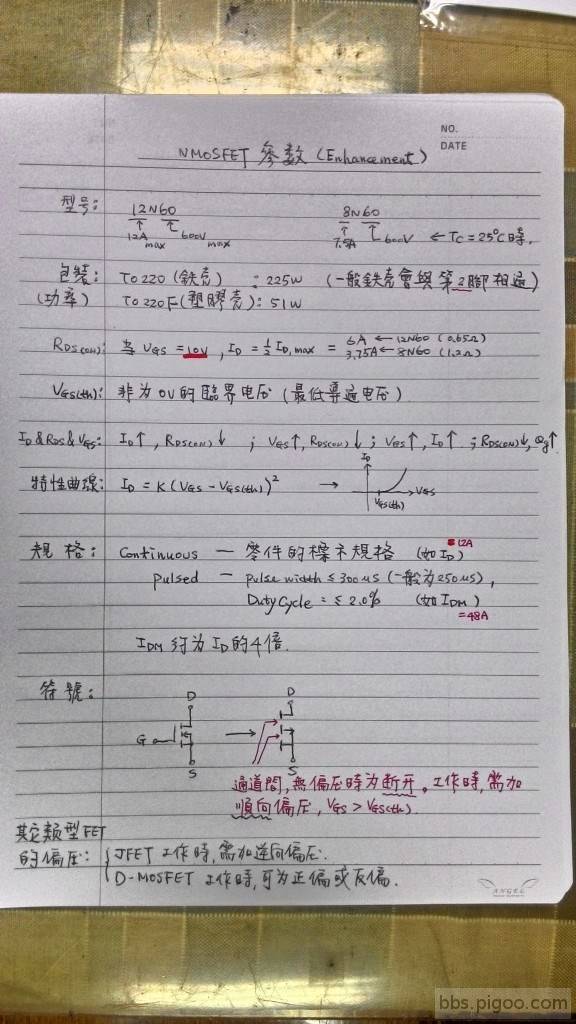 NO.
DATE
NMOSFET 參數 (Enhancement)
型号: 12N60 8N60
12A max 600V max 7.5A 600V ← Tc=25°C時.
包裝: TO220 (鉄壳) : 225W (一般鉄壳會與第2腳相通)
(功率) TO220F(塑膠壳): 51W
RDS(ON): 当 VGS = 10V, ID = ½ ID,max = 6A ← 12N60 (0.65Ω)
3.75A ← 8N60 (1.2Ω)
VGS(th): 非为 0V 的臨界电压 (最低導通电压)
ID & RDS & VGS: ID↑, RDS(ON)↓ ; VGS↑, RDS(ON)↓ ; VGS↑, ID↑ ; RDS(ON)↓, Qg↑
特性曲線: ID = K(VGS - VGS(th))² → ID VGS
VGS(th)
=12A
規格: Continuous — 零件的標示規格 (如 ID)
pulsed — pulse width ≤ 300us (一般为 250us),
Duty Cycle = ≤ 2.0% (如 IDM)
=48A
IDM 約为 ID 的 4倍.
符號: D D
G →
S S
通道間, 無偏压時为断开。工作時, 需加
順向偏压, VGS > VGS(th)
其它類型FET
的偏压: JFET 工作時, 需加逆向偏压.
D-MOSFET 工作時, 可为正偏或反偏.
ANGEL
bbs.pigoo.com